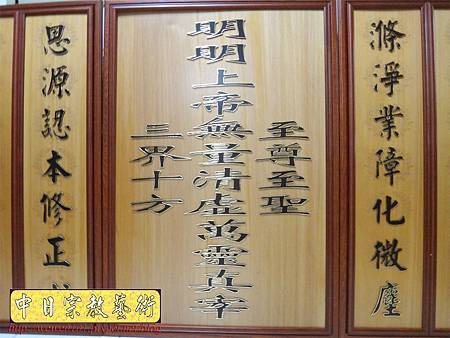 滌淨業障化微塵
至尊至聖
明明上帝無量清虛萬靈真宰
三界十方
思源認本修正
中日宗教藝術